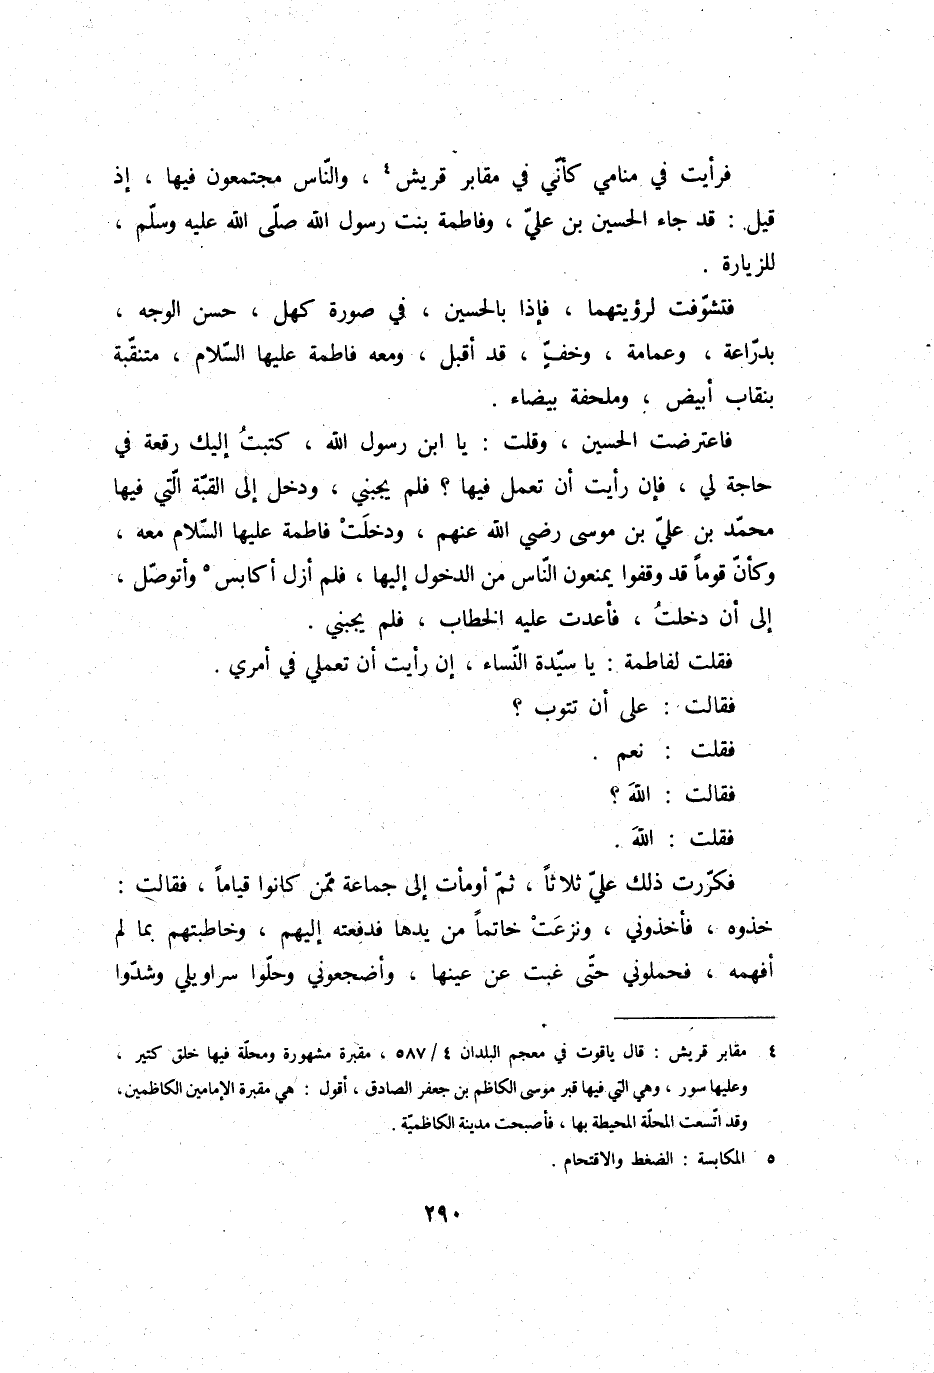 فرأيت في منامي كأنّي في مقابر قريش⁴ ، والنّاس مجتمعون فيها ، إذ
قيل : قد جاء الحسين بن عليّ ، وفاطمة بنت رسول الله صلّى الله عليه وسلّم ،
للزيارة .
فتشوّفت لرؤيتهما ، فإذا بالحسين ، في صورة كهل ، حسن الوجه ،
بدرّاعة ، وعمامة ، وخفّ ، قد أقبل ، ومعه فاطمة عليها السّلام ، متنقّبة
بنقاب أبيض ، وملحفة بيضاء .
فاعترضت الحسين ، وقلت : يا ابن رسول الله ، كتبتُ إليك رقعة في
حاجة لي ، فإن رأيت أن تعمل فيها ؟ فلم يجبني ، ودخل إلى القبّة الّتي فيها
محمّد بن عليّ بن موسى رضي الله عنهم ، ودخلَتْ فاطمة عليها السّلام معه ،
وكأنّ قوماً قد وقفوا يمنعون النّاس من الدخول إليها ، فلم أزل أكابس⁵ وأتوصّل ،
إلى أن دخلتُ ، فأعدت عليه الخطاب ، فلم يجبني .
فقلت لفاطمة : يا سيّدة النّساء ، إن رأيت أن تعملي في أمري .
فقالت : على أن تتوب ؟
فقلت : نعم .
فقالت : اللهَ ؟
فقلت : اللهَ .
فكرّرت ذلك عليّ ثلاثاً ، ثمّ أومأت إلى جماعة ممّن كانوا قياماً ، فقالت :
خذوه ، فأخذوني ، ونزعَتْ خاتماً من يدها فدفعته إليهم ، وخاطبتهم بما لم
أفهمه ، فحملوني حتّى غبت عن عينها ، وأضجعوني وحلّوا سراويلي وشدّوا
٤ مقابر قريش : قال ياقوت في معجم البلدان ٤/ ٥٨٧ ، مقبرة مشهورة ومحلّة فيها خلق كثير ،
وعليها سور ، وهي التي فيها قبر موسى الكاظم بن جعفر الصادق ، أقول : هي مقبرة الإمامين الكاظمين،
وقد اتّسعت المحلّة المحيطة بها ، فأصبحت مدينة الكاظميّة .
٥ المكابسة : الضغط والاقتحام .
٢٩٠